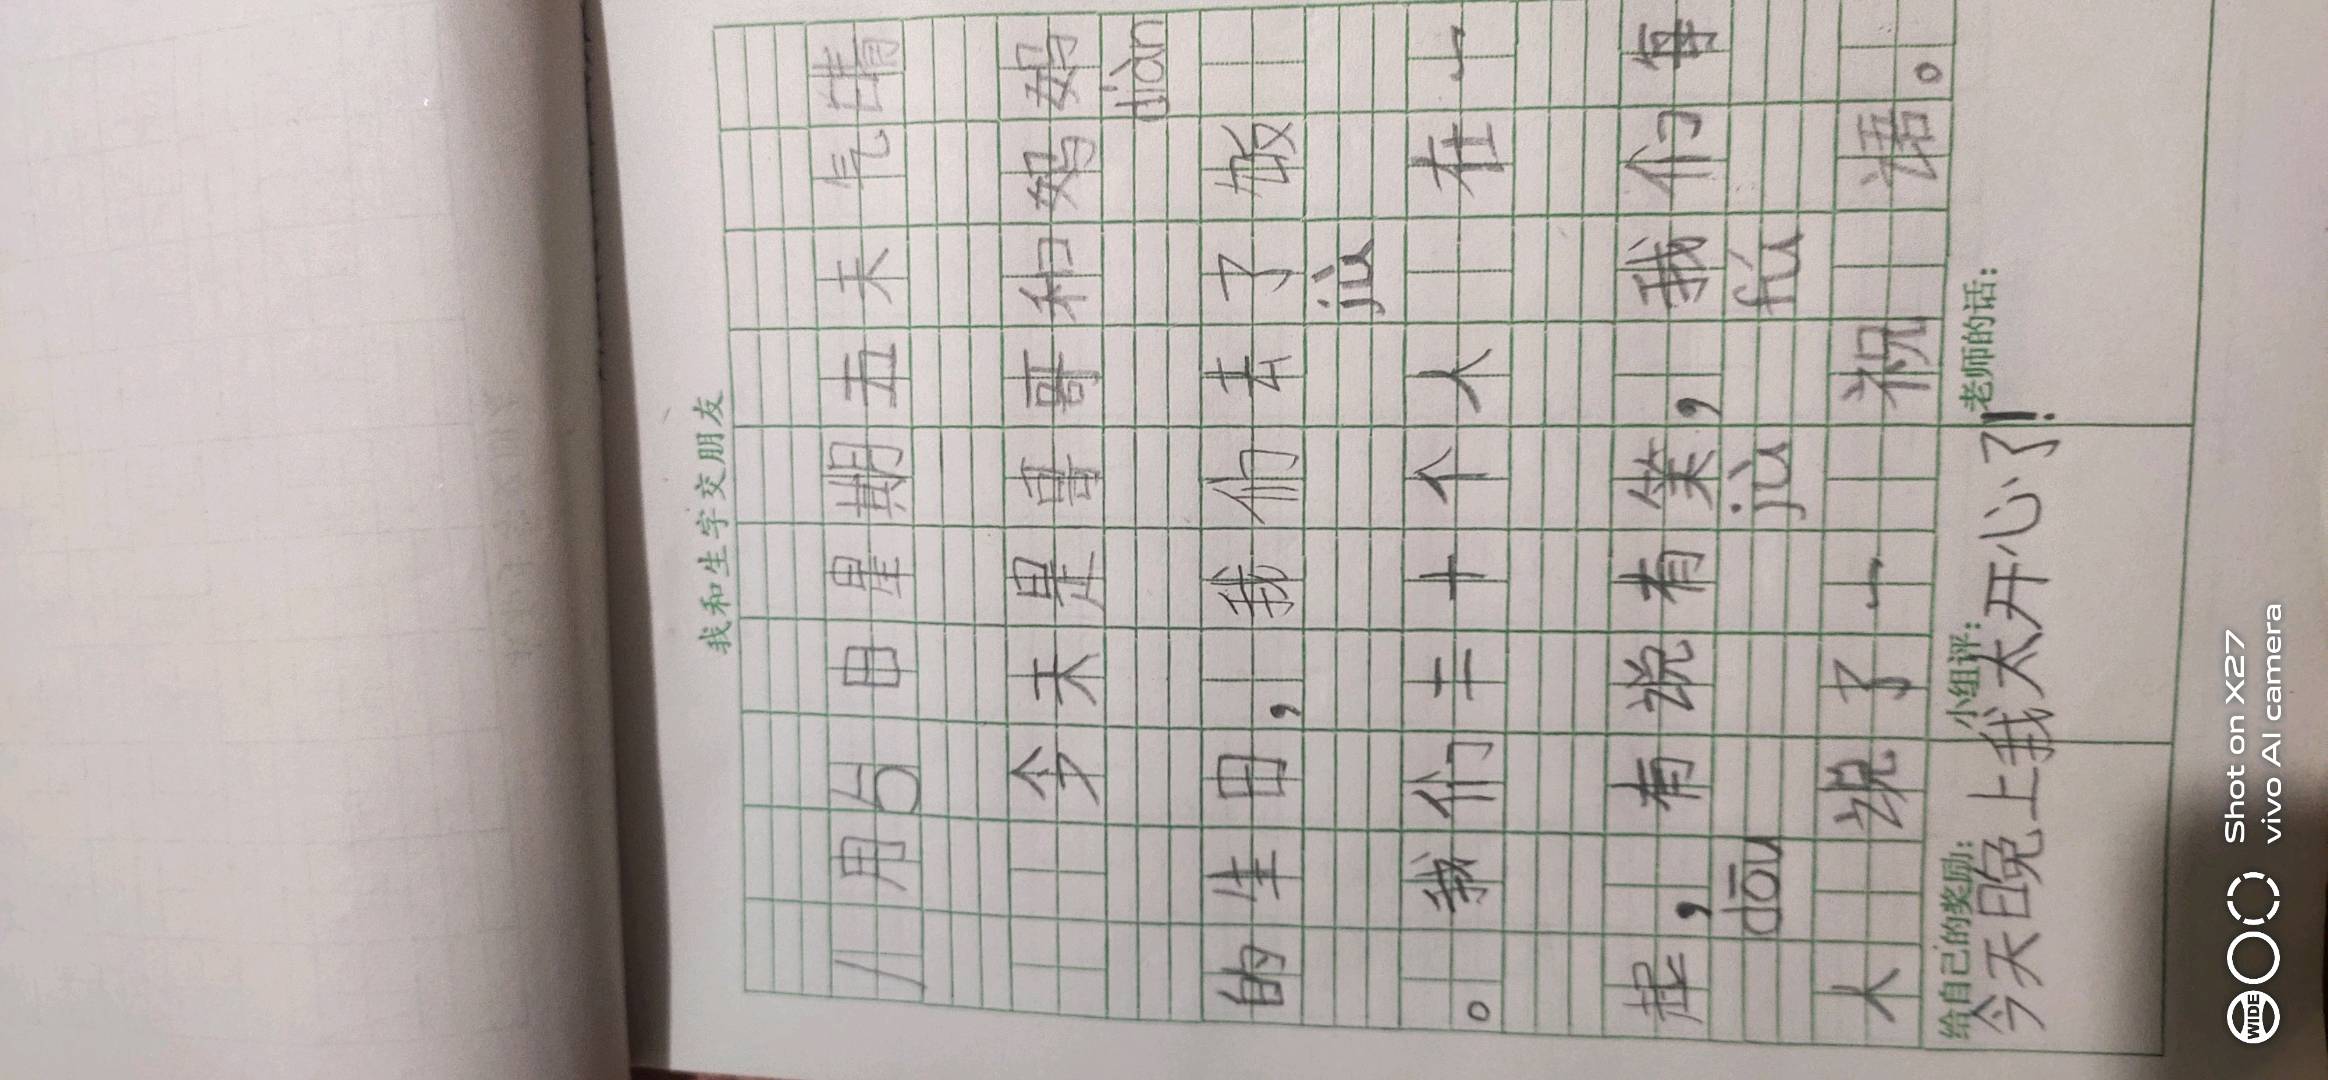 我和生字交朋友
八月6日 星期五 天气晴
今天是哥哥和妈妈
diàn
的生日，我们去了饭
jù
。我们二十个人 在一
起，有说有笑，我们每
dōu jù fú
人 说了一 祝 语。
给自己的奖励： 小组评： 老师的话：
今天晚上我太开心了！
WIDE
Shot on X27
vivo AI camera